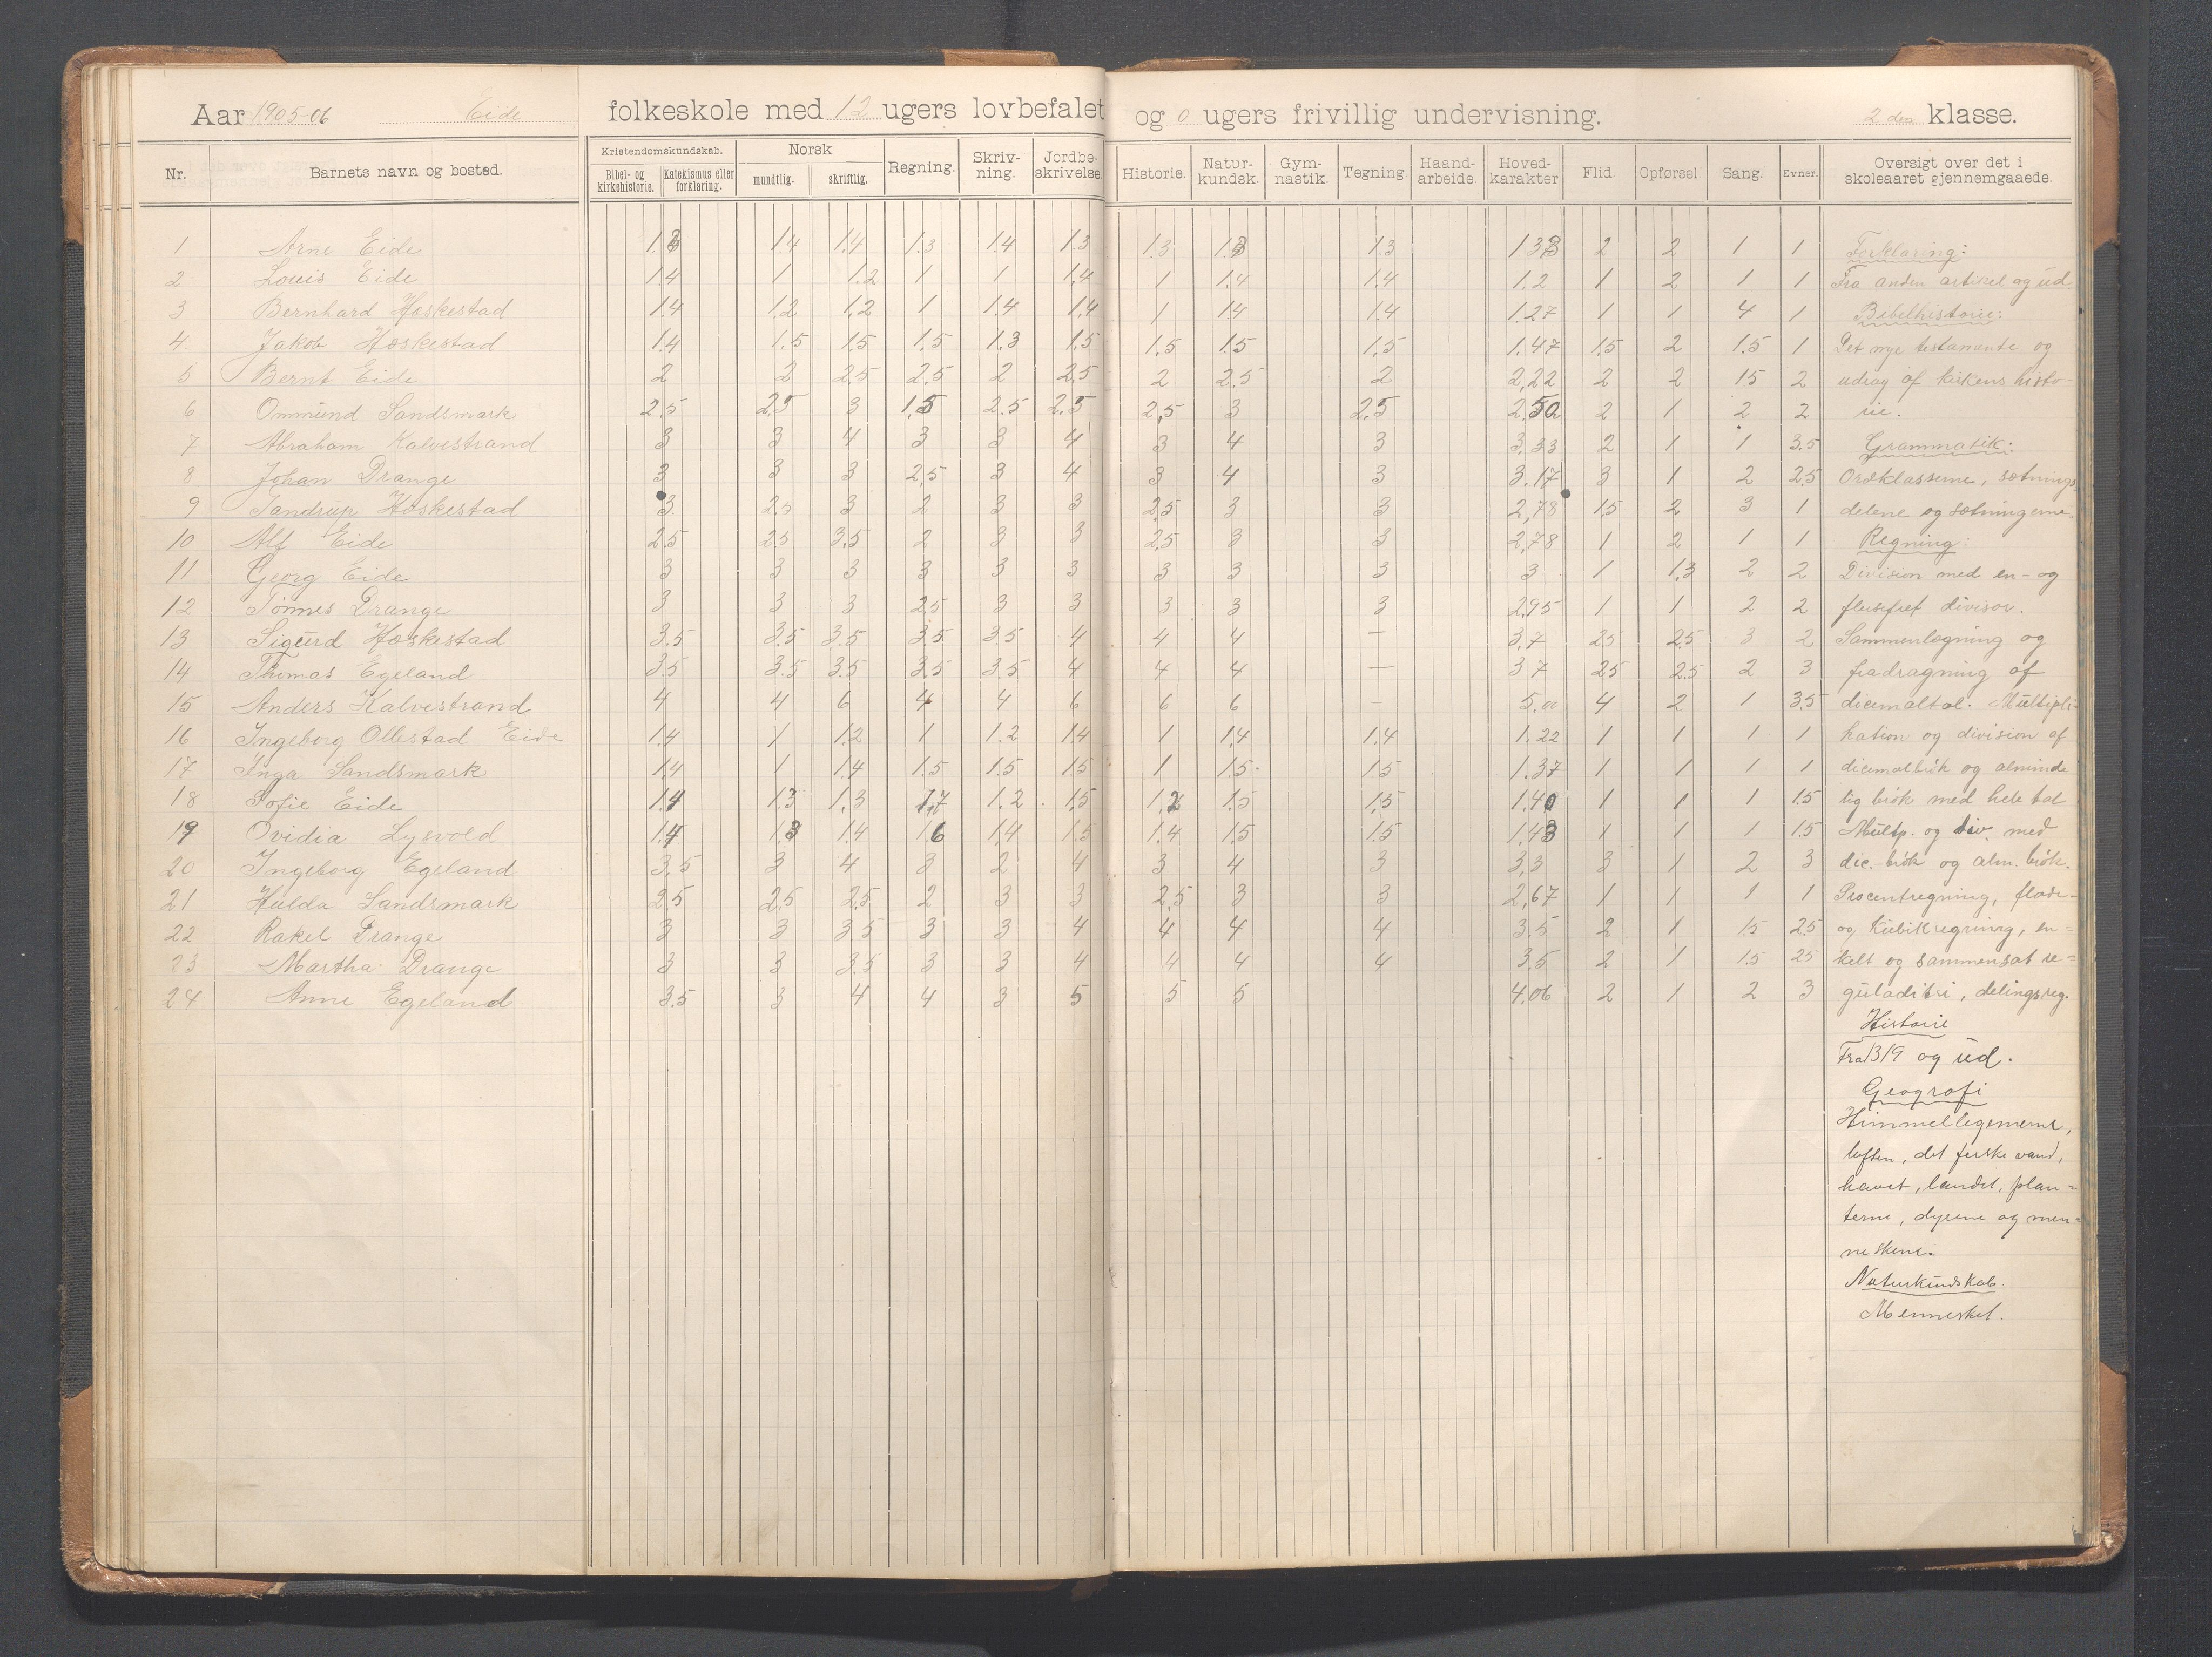 Aar 1905-06 Eide folkeskole med 12 ugers lovbefalet og 0 ugers frivillig undervisning. 2den klasse.
Nr. Barnets navn og bosted. Kristendomskundskab. Bibel- og kirkehistorie. Katekismus eller forklaring. Norsk mundtlig. skriftlig. Regning. Skriv-ning. Jordbe-skrivelse. Historie. Natur-kundsk. Gym-nastik. Tegning Haand-arbeide. Hoved-karakter Flid. Opførsel. Sang. Evner. Oversigt over det i skoleaaret gjennemgaaede.
1 Arne Eide 1.3 1.4 1.4 1.3 1.4 1.3 1.3 1.3 1.3 1.33 2 2 1 1 Forklaring:
2 Louis Eide 1.4 1 1.2 1 1 1.4 1 1.4 1.4 1.2 1 2 1 1 Fra anden artikel og ud
3 Bernhard Hæskestad 1.4 1.2 1.2 1 1.4 1.4 1 1.4 1.4 1.27 1 1 4 1 Bibelhistorie:
4. Jakob Hæskestad 1.4 1.5 1.5 1.5 1.3 1.5 1.5 1.5 1.5 1.47 1.5 2 1.5 1 Det nye testamente og
5 Bernt Eide 2 2 2.5 2.5 2 2.5 2 2.5 2 2,22 2 2 1.5 2 udrag af kirkens histo-
6 Ommund Sandsmark 2.5 2.5 3 1.5 2.5 2.5 2,5 3 2.5 2.50 2 1 2 2 rie.
7 Abraham Kalvestrand 3 3 4 3 3 4 3 4 3 3.33 2 1 1 3.5 Grammatik:
8 Johan Drange 3 3 3 2,5 3 4 3 4 3 3.17 3 1 2 2.5 Ordklasserne, sætnings-
9 Tandrup Hæskestad 3. 2.5 3 2 3 3 2.5 3 3 2,78 1.5 2 3 1 delene og sætningerne.
10 Alf Eide 2.5 2.5 3.5 2 3 3 2.5 3 3 2,78 1 2 1 1 Regning:
11 Georg Eide 3 3 3 3 3 3 3 3 3 3 1 1.3 2 2 Division med en- og
12 Tønnes Drange 3 3 3 2.5 3 3 3 3 3 2.95 1 1 2 2 flersifret divisor.
13 Sigurd Hæskestad 3.5 3.5 3.5 3.5 3.5 4 4 4 — 3.7 2.5 2.5 3 2 Sammenlægning og
14 Thomas Egeland 3.5 3.5 3.5 3.5 3.5 4 4 4 — 3.7 2.5 2.5 2 3 fradragning af
15 Anders Kalvestrand 4 4 6 4 4 6 6 6 - 5.00 4 2 1 3.5 dicemaltal. Multipli-
16 Ingeborg Ollestad Eide 1.4 1 1.2 1 1.2 1.4 1 1.4 1.4 1.22 1 1 1 1 kation og division af
17 Inga Sandsmark 1.4 1 1.4 1.5 1.5 1.5 1 1.5 1.5 1.37 1 1 1 1 dicemalbrøk og alminde
18 Sofie Eide 1.4 1.3 1.3 1.7 1.2 1.5 1.2 1.5 1.5 1.40 1 1 1 1.5 lig brøk med hele tal
19 Ovidia Lysvold 1.4 1.3 1.4 1.6 1.4 1.5 1.4 1.5 1.5 1.43 1 1 1 1.5 Multp. og div. med
20 Ingeborg Egeland 3.5 3 4 3 2 4 3 4 3 3,3 3 1 2 3 dic.-brøk og alm. brøk.
21 Hulda Sandsmark 2.5 2.5 2.5 2 3 3 2.5 3 3 2,67 1 1 1 1 Procentregning, flade-
22 Rakel Drange 3 3 3.5 3 3 4 4 4 4 3.5 2 1 1.5 2.5 og kubikregning, en-
23 Martha Drange 3 3 3.5 3 3 4 4 4 4 3.5 2 1 1.5 2.5 kelt og sammensat re-
24 Anne Egeland 3.5 3 4 4 3 5 5 5 4.06 2 1 2 3 guladitri, delingsreg.
Historie
Fra 1319 og ud.
Geografi
Himmellegemerne,
luften, det ferske vand,
havet, landet, plan-
terne, dyrene og men-
neskene.
Naturkundskab.
Mennesket.